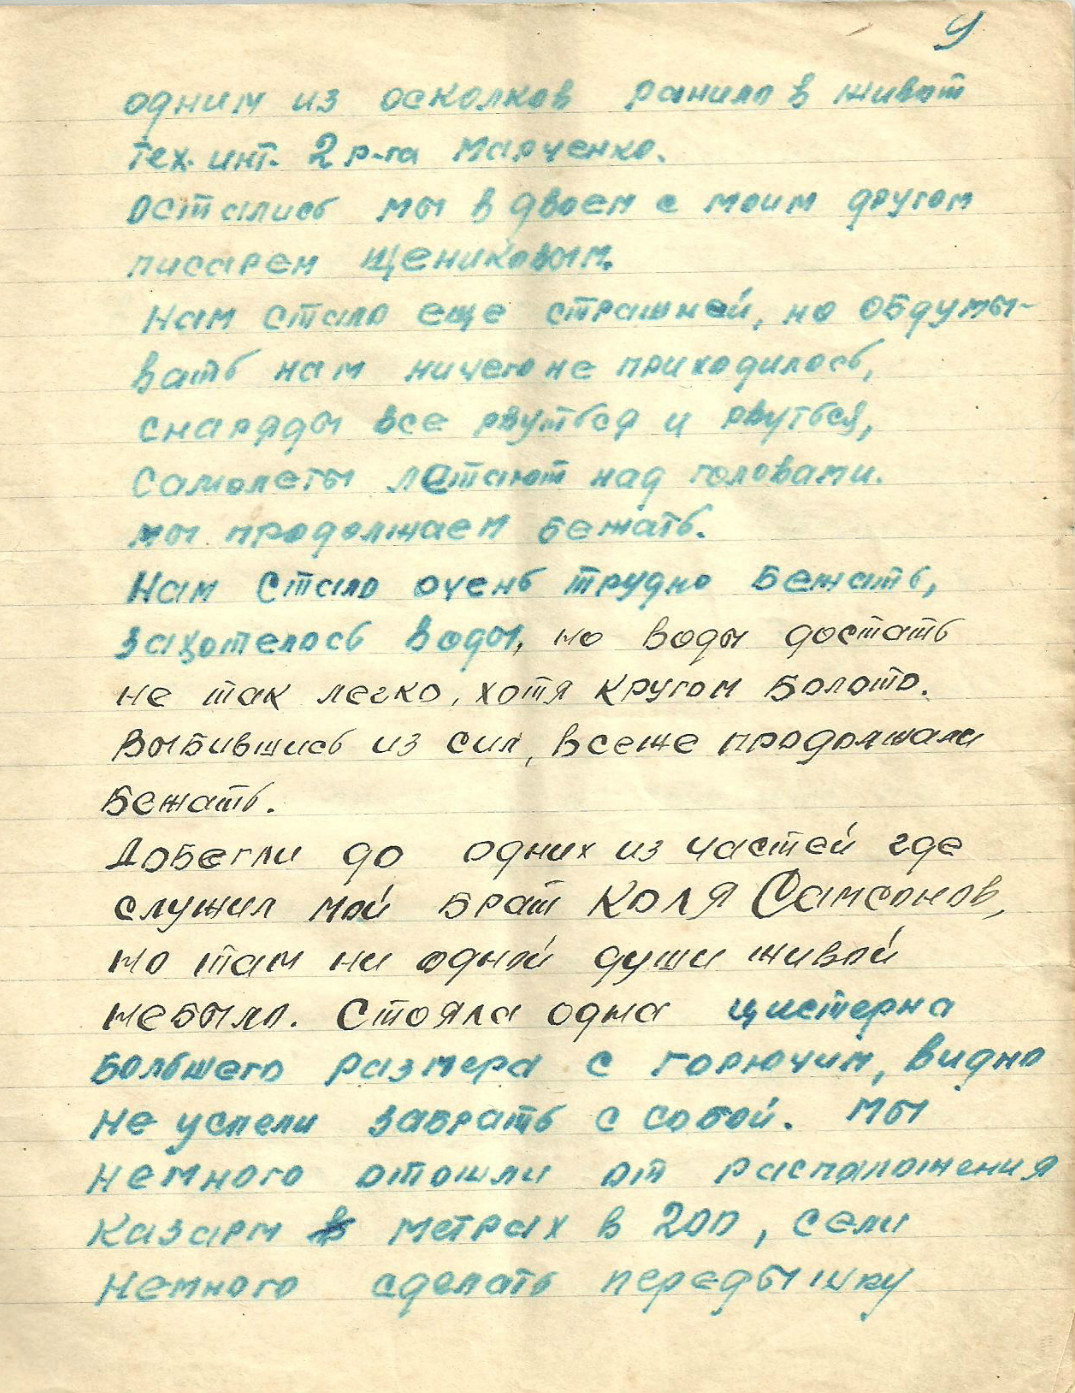 9
одним из осколков ранило в живот
тех. инт. 2 р-га Марченко.
Остались мы в двоем с моим другом
писарем Щениковым.
Нам стало еще страшней, но обдумы-
вать нам ничего не приходилось,
снаряды все рвуться и рвуться,
Самолеты летают над головами.
мы продолжаем бежать.
Нам стало очень трудно бежать,
захотелось воды, но воды достать
не так легко, хотя кругом болото.
Выбившись из сил, всеже продолжали
бежать.
Добегли до одних из частей где
служил мой брат Коля Самсонов,
но там ни одной души живой
небыло. Стояла одна цистерна
большего размера с горючим, видно
не успели забрать с собой. Мы
немного отошли от распаложения
казарм метрах в 200, сели
немного сделать передышку